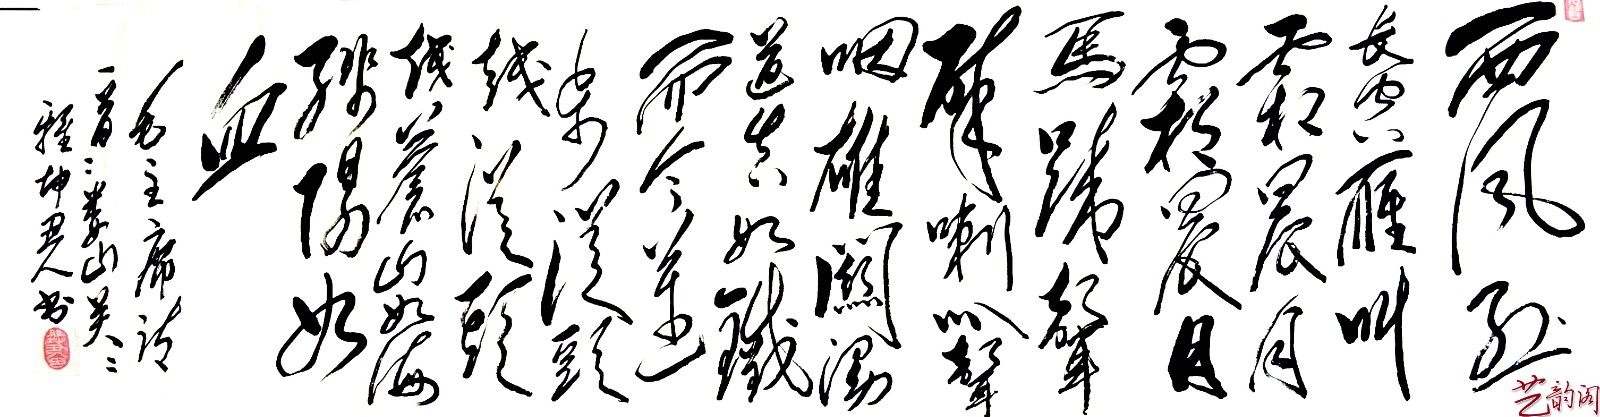 西风烈
长空雁叫
霜晨月
霜晨月
馬蹄聲
碎喇叭聲
咽雄關漫
道真如鐵
而今邁
步從頭
越從頭
越蒼山如海
殘陽如
血
毛主席詩
一首婁山关
坤 人书
艺韵阁